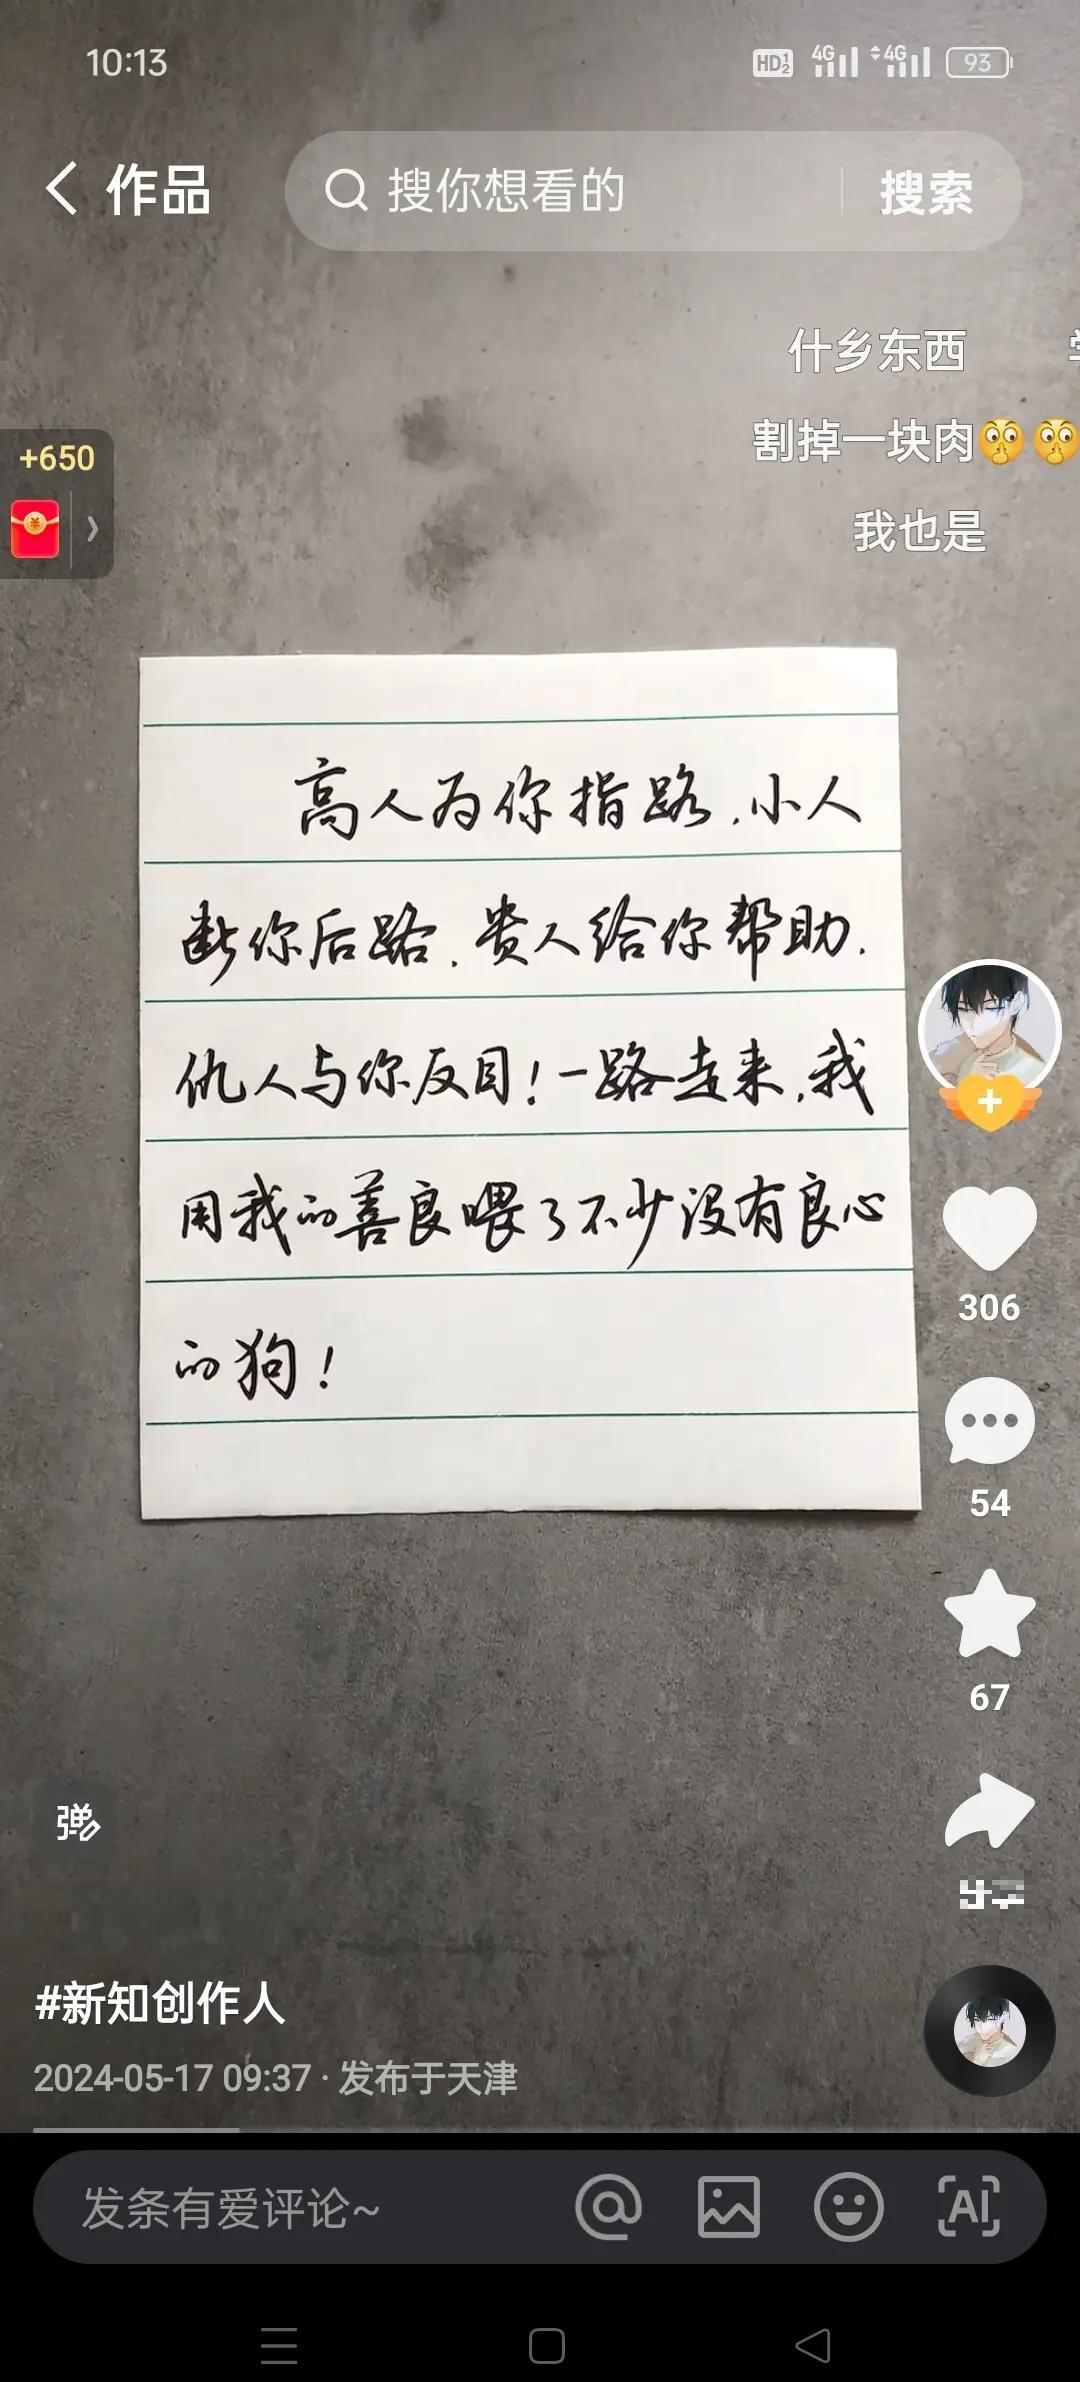 10:13
HD 1 2 4G 4G 93
作品
搜你想看的
搜索
什乡东西
割掉一块肉
+650
我也是
高人为你指路.小人
断你后路.贵人给你帮助.
仇人与你反目!一路走来,我
用我的善良喂了不少没有良心
的狗!
306
54
67
弹
#新知创作人
2024-05-17 09:37 · 发布于天津
发条有爱评论~
AI